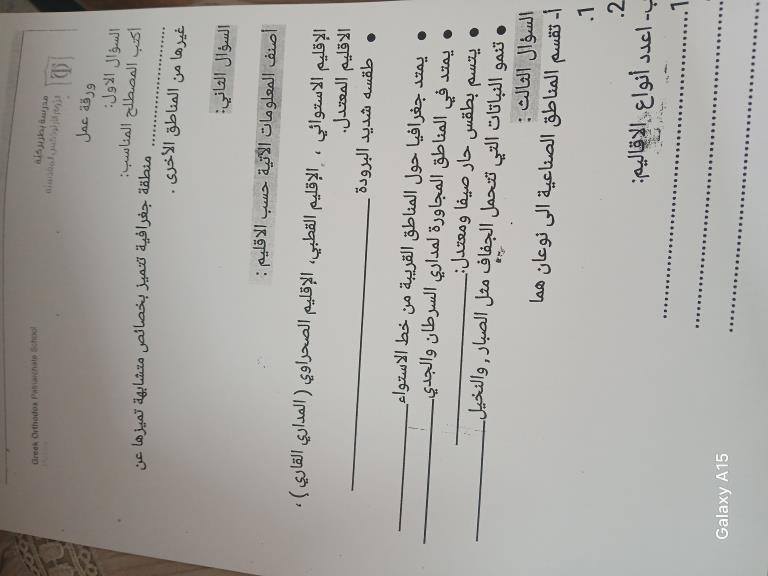 Greek Orthodox Patriarchate School
ورقة عمل
السؤال الاول:
اكتب المصطلح المناسب:
................ منطقة جغرافية تتميز بخصائص متشابهة تميزها عن
غيرها من المناطق الاخرى .
السؤال الثاني:
اصنف المعلومات الاتية حسب الاقليم :
الإقليم الاستوائي ، الإقليم القطبي، الإقليم الصحراوي ( المداري القاري ) ،
الاقليم المعتدل.
• طقسه شديد البرودة ________
• يمتد جغرافيا حول المناطق القريبة من خط الاستواء ________
• يمتد في المناطق المجاورة لمداري السرطان والجدي ________
• يتسم بطقس حار صيفا ومعتدل: ________
• تنمو النباتات التي تتحمل الجفاف مثل الصبار , والنخيل ________
السؤال الثالث :
أ- تقسم المناطق الصناعية الى نوعان هما
1.
2.
ب- اعدد أنواع الاقاليم:
1................
Galaxy A15